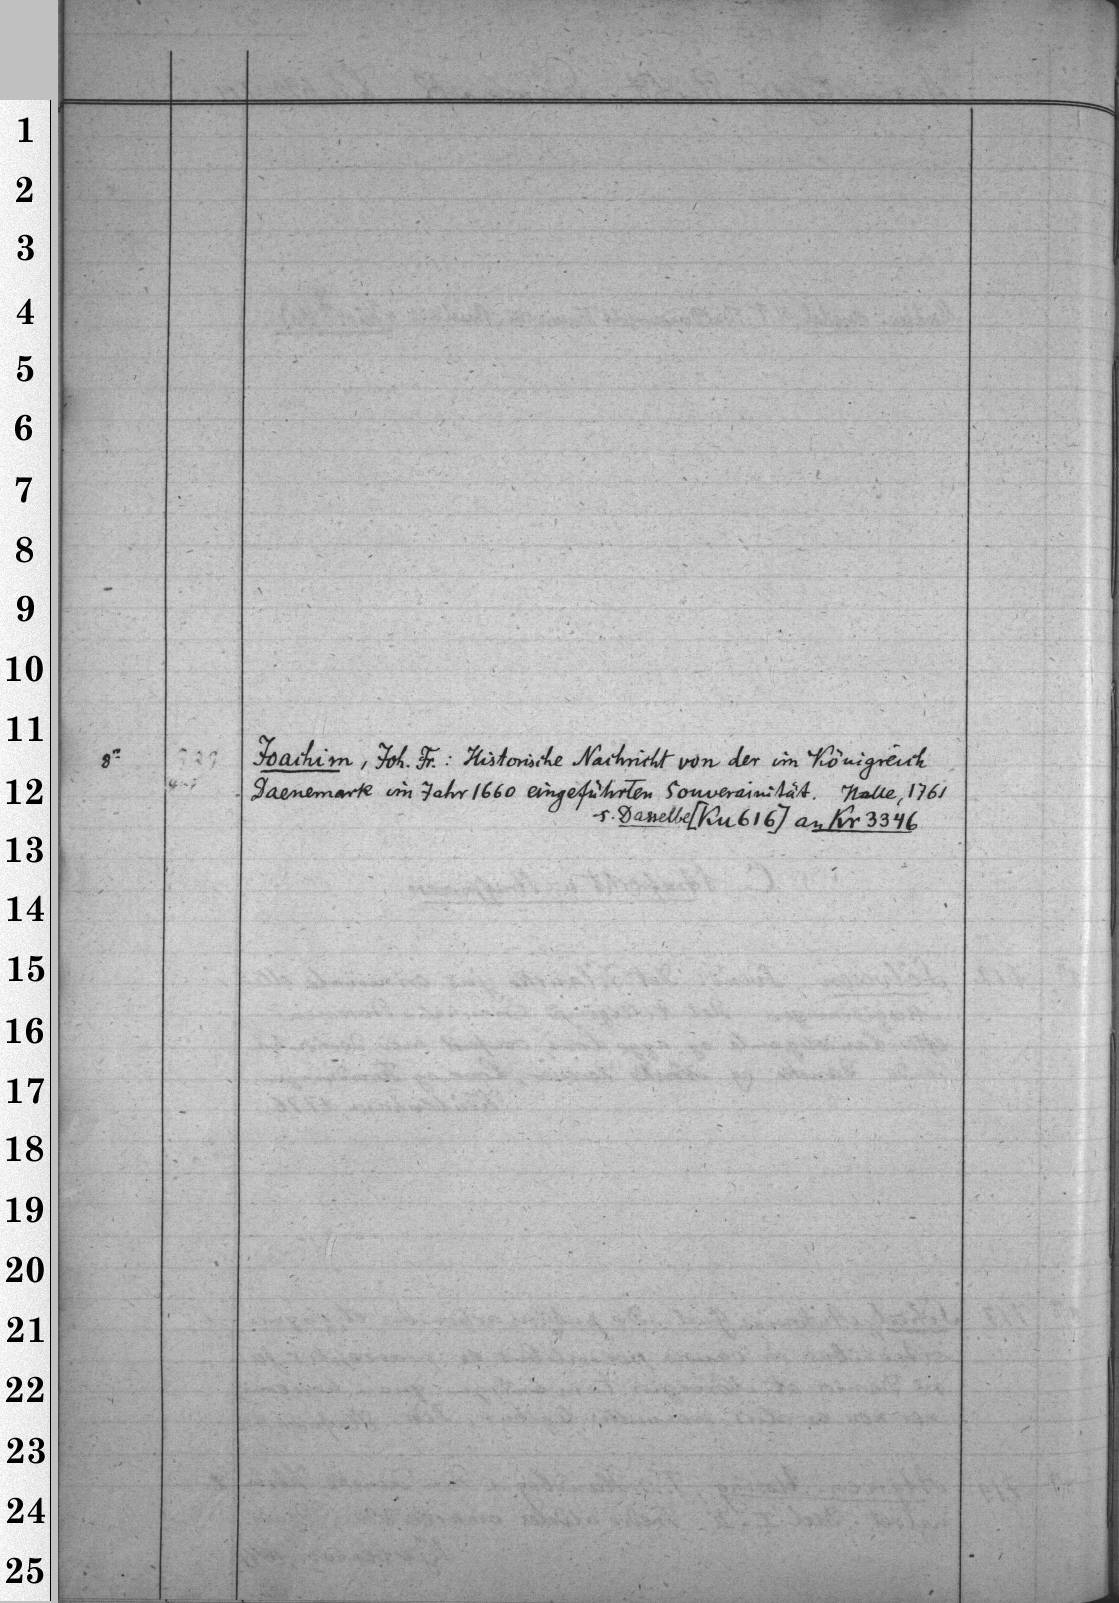 1
2
3
4
5
6
7
8
9
10
11
8°
Joachim, Joh. Fr.: Historische Nachricht von der im Königreich
12
Daenemark im Jahr 1660 eingeführten Souverainität. Halle, 1761
s. Dasselbe [Ku 616] an Kr 3346
13
14
15
16
17
18
19
20
21
22
23
24
25